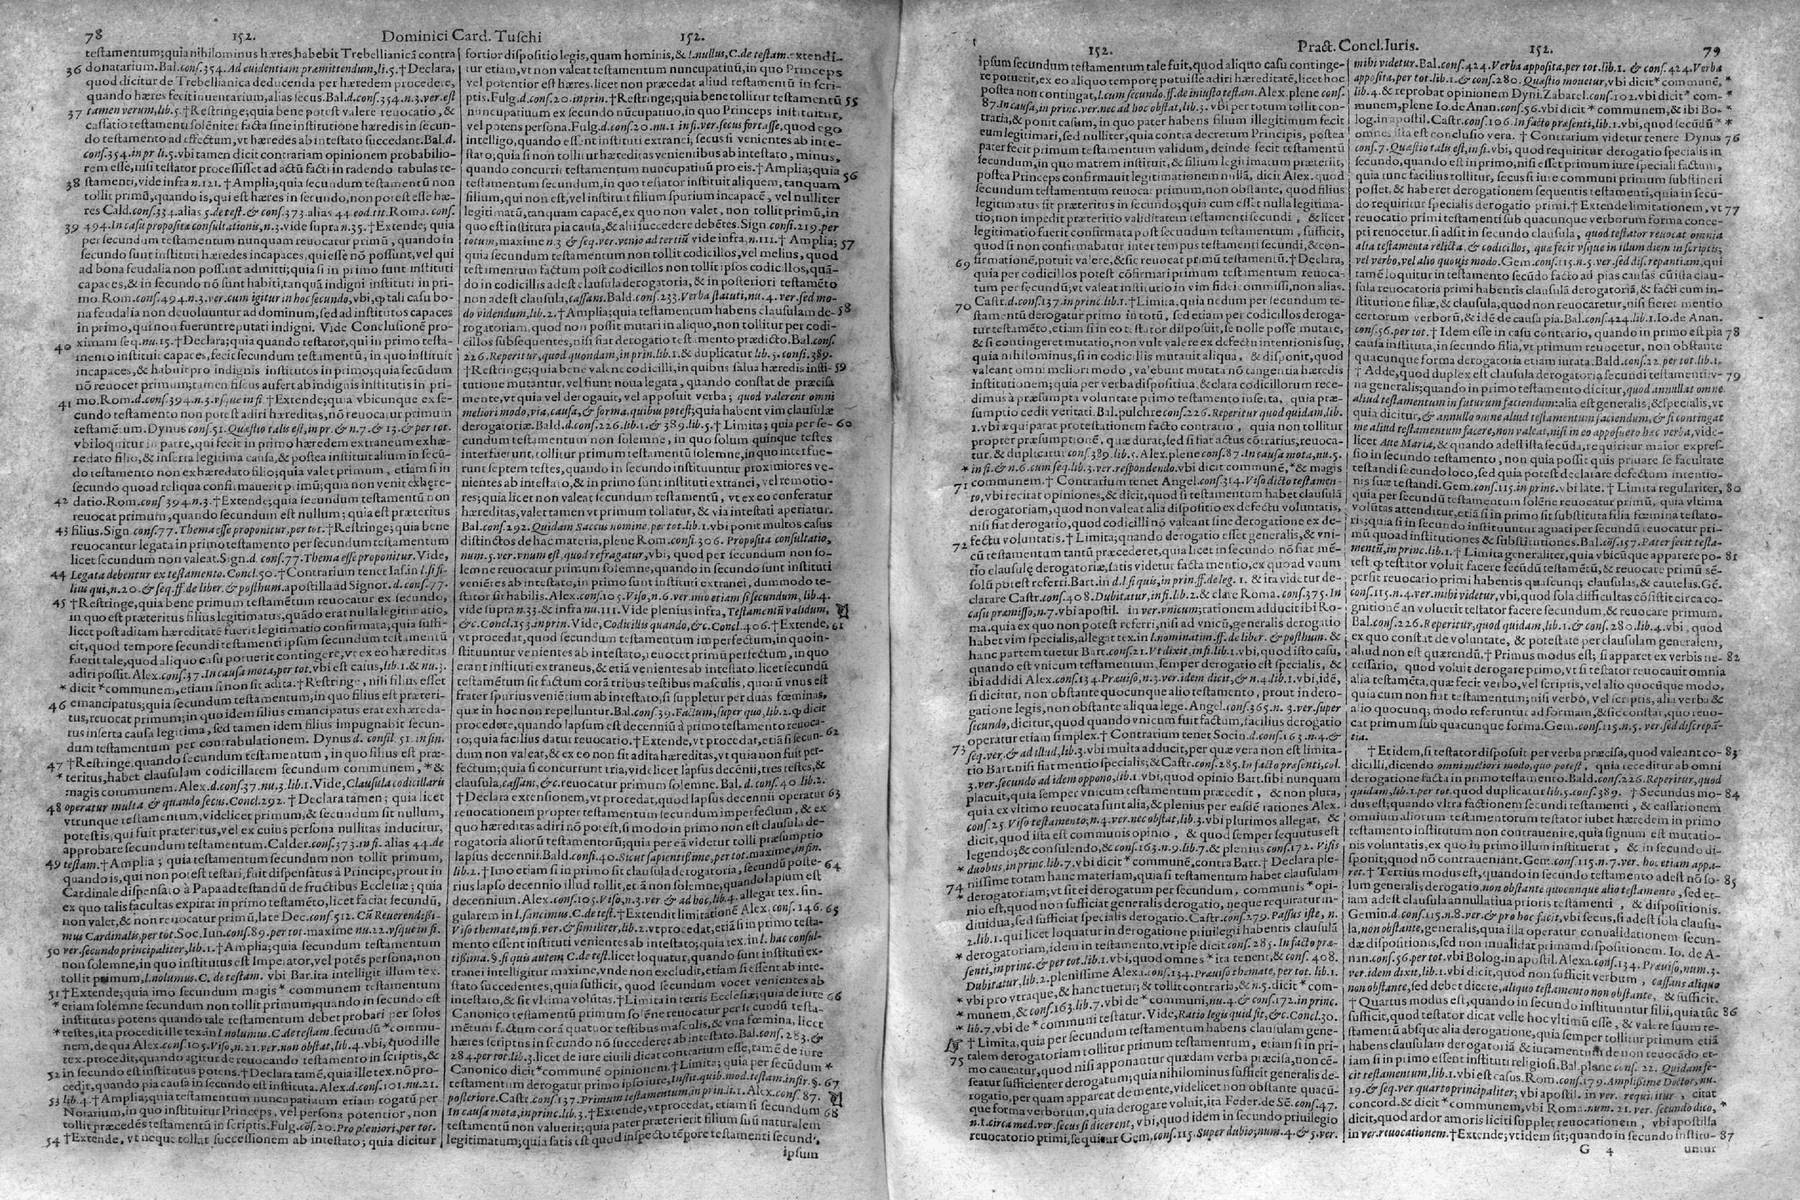 78 152. Dominici Card. Tuschi 152.
testamentum; quia nihilominus hæres habebit Trebellianicā contra
36 donatarium. Bal. conſ. 354. Ad euidentiam præmittendum, li. 5. † Declara,
quod dicitur de Trebellianica deducenda per hæredem procedere,
quando hæres fecit inuentarium, alias ſecus. Bal. d. conſ. 354. n. 3. ver. eſt
37 tamen verum, lib. 5. † Reſtringe; quia bene poteſt valere reuocatio, &
caſſatio teſtamenti ſolēniter facta ſine inſtitutione hæredis in ſecun-
do teſtamento ad effectum, vt hæredes ab inteſtato ſuccedant. Bal. d.
conſ. 354. in pr li. 5. vbi tamen dicit contrariam opinionem probabilio-
rem eſſe, niſi teſtator proceſſiſſet ad actū facti in radendo tabulas te-
38 ſtamenti, vide infra n. 121. † Amplia; quia ſecundum teſtamentū non
tollit primū, quando is, qui eſt hæres in ſecundo, non poteſt eſſe hæ-
res Cald. conſ. 334. alias 5. de teſt. & conſ. 373 alias 44 eod. tit. Roma. conſ.
39 494. In caſu propoſitæ conſultationis, n. 3. vide ſupra n. 35. † Extende; quia
per ſecundum teſtamentum nunquam reuocatur primū, quando in
ſecundo ſunt inſtituti hæredes incapaces, qui eſſe nō poſſunt, vel qui
ad bona feudalia non poſſunt admitti; quia ſi in primo ſunt inſtituti
capaces, & in ſecundo nō ſunt habiti, tanquā indigni inſtituti in pri-
mo. Rom. conſ. 494. n. 3. ver. cum igitur in hoc ſecundo, vbi, ꝙ tali caſu bo-
na feudalia non deuoluuntur ad dominum, ſed ad inſtitutos capaces
in primo, qui non fuerunt reputati indigni. Vide Concluſionē pro-
40 ximam ſeq. nu. 15. † Declara; quia quando teſtator, qui in primo teſta-
mento inſtituit capaces, fecit ſecundum teſtamentū, in quo inſtituit
incapaces, & habuit pro indignis inſtitutos in primo; quia ſecūdum
nō reuocet primum; tamen fiſcus aufert ab indignis inſtitutis in pri-
41 mo. Rom. d. conſ. 394. n. 3. vſque in fi † Extende; quia vbicunque ex ſe-
cundo teſtamento non poteſt adiri hæreditas, nō reuocatur primum
teſtamētum. Dynus conſ. 51. Quæſtio talis eſt, in pr. & n. 7. & 13. & per tot.
vbi loquitur in patre, qui fecit in primo hæredem extraneum exhæ-
redato filio, & inſerta legitima cauſa, & poſtea inſtituit alium in ſecū-
do teſtamento non exhæredato filio; quia valet primum, etiam ſi in
ſecundo quoad reliqua confirmauerit primū; quia non venit exhære-
42 datio. Rom. conſ 394. n. 3. † Extende; quia ſecundum teſtamentū non
reuocat primum, quando ſecundum eſt nullum; quia eſt præteritus
43 filius. Sign. conſ. 77. Thema eſſe proponitur, per tot. † Reſtringe; quia bene
reuocantur legata in primo teſtamento per ſecundum teſtamentum
licet ſecundum non valeat. Sign. d. conſ. 77. Thema eſſe proponitur. Vide,
44 Legata debentur ex teſtamento. Concl. 50. † Contrarium tenet Iaſ. in l. ſi fi-
lius qui, n. 20. & ſeq. ff. de liber. & poſthum. apoſtilla ad Signor. d. conſ. 77.
45 † Reſtringe, quia bene primum teſtamētum reuocatur ex ſecundo,
in quo eſt præteritus filius legitimatus, quādo erat nulla legitimatio,
licet poſt aditam hæreditatē fuerit legitimatio confirmata; quia ſuffi-
cit, quod tempore ſecundi teſtamenti ipſum ſecundum teſtamentū
fuerit tale, quod aliquo caſu potuerit contingere, vt ex eo hæreditas
adiri poſſit. Alex. conſ. 37. In cauſa mota, per tot. vbi eſt caſus, lib. 1. & nu. 3.
* dicit * communem, etiam ſi non ſit adita. † Reſtringe, niſi filius eſſet
46 emancipatus; quia ſecundum teſtamentum, in quo filius eſt præteri-
tus, reuocat primum; in quo idem filius emancipatus erat exhæreda-
tus inſerta cauſa legitima, ſed tamen idem filius impugnabit ſecun-
dum teſtamentum per contrabulationem. Dynus d. conſil 51. in fin.
47 † Reſtringe. quando ſecundum teſtamentum, in quo filius eſt præ-
* teritus, habet clauſulam codicillarem ſecundum communem, * &
magis communem. Alex. d. conſ. 37. nu. 3. lib. 1. Vide, Clauſula codicillaris
48 operatur multa & quando ſecus. Concl. 292. † Declara tamen; quia licet
vtrunque teſtamentum, videlicet primum, & ſecundum ſit nullum,
poteſtis, qui fuit præteritus, vel ex cuius perſona nullitas inducitur,
approbare ſecundum teſtamentum. Calder. conſ. 373. in fi. alias 44. de
49 teſtam. † Amplia; quia teſtamentum ſecundum non tollit primum,
quando is, qui non poteſt teſtari, fuit diſpenſatus à Principe, prout in
Cardinale diſpenſato à Papa ad teſtandū de fructibus Eccleſiæ; quia
ex quo talis facultas expirat in primo teſtamēto, licet faciat ſecundū,
non valet, & non reuocat primū, late Dec. conſ. 512. Cū Reuerendiſſi-
mus Cardinalis, per tot. Soc. Iun. conſ. 89. per tot. maxime nu. 22. vſque in fi.
50 ver. ſecundo principaliter, lib. 1. † Amplia; quia ſecundum teſtamentum
non ſolemne, in quo inſtitutus eſt Imperator, vel potēs perſona, non
tollit primum, l. nolumus. C. de teſtam. vbi Bar. ita intelligit illum tex.
51 † Extende; quia imo ſecundum magis * communem teſtamentum
* etiam ſolemne ſecundum non tollit primum; quando in ſecundo eſt
inſtitutus potens quando tale teſtamentum debet probari per ſolos
* teſtes, ita procedit ille tex. in l. nolumus. C. de teſtam. ſecundū * commu-
nem, de qua Alex. conſ. 105. Viſo, n. 21. ver. non obſtat, lib. 4. vbi, quod ille
tex. procedit, quando agitur de reuocando teſtamento in ſcriptis, &
52 in ſecundo eſt inſtitutus potens. † Declara tamē, quia ille tex. nō pro-
cedit, quando pia cauſa in ſecundo eſt inſtituta. Alex. d. conſ. 101. nu. 21.
53 lib. 4. † Amplia; quia teſtamentum nuncupatiuum etiam rogatū per
Notarium, in quo inſtituitur Princeps, vel perſona potentior, non
tollit præcedēs teſtamentū in ſcriptis. Fulg. cōſ. 20. Pro pleniori, per tot.
54 † Extende, vt neque tollat ſucceſſionem ab inteſtato; quia dicitur
fortior diſpoſitio legis, quam hominis, & l. nullus, C. de teſtam. extendi-
tur etiam, vt non valeat teſtamentum nuncupatiuū, in quo Princeps
vel potentior eſt hæres. licet non præcedat aliud teſtamentū in ſcri-
ptis. Fulg. d. conſ. 20. in prin. † Reſtringe; quia bene tollitur teſtamentū 55
nuncupatiuum ex ſecundo nūcupatiuo, in quo Princeps inſtituitur,
vel potens perſona. Fulg. d. conſ. 20. nu. 1 in fi. ver. ſecus fortaſſe, quod ego
intelligo, quando eſſent inſtituti extranei, ſecus ſi venientes ab inte-
ſtato; quia ſi non tollitur hæreditas venientibus ab inteſtato, minus,
quando concurrit teſtamentum nuncupatiuū pro eis. † Amplia; quia 56
teſtamentum ſecundum, in quo teſtator inſtituit aliquem, tanquam
filium, qui non eſt, vel inſtituit filium ſpurium incapacē, vel nulliter
legitimatū, tanquam capacē, ex quo non valet, non tollit primū, in
quo eſt inſtituta pia cauſa, & alii ſuccedere debētes. Sign. conſ. 219. per
totum, maxime n. 3 & ſeq. ver. venio ad tertiū vide infra, n. 111. † Amplia; 57
quia ſecundum teſtamentum non tollit codicillos, vel melius, quod
teſtamentum factum poſt codicillos non tollit ipſos codicillos, quā-
do in codicillis adeſt clauſula derogatoria, & in poſteriori teſtamēto
non adeſt clauſula, caſſans. Bald. conſ. 233. Verba ſtatuti, nu. 4. ver. ſed mo-
do videndum, lib. 2. † Amplia; quia teſtamentum habens clauſulam de- 58
rogatoriam, quod non poſſit mutari in aliquo, non tollitur per codi-
cillos ſubſequentes, niſi fiat derogatio teſtamento prædicto. Bal. conſ.
226. Reperitur, quod quondam, in prin. lib. 1. & duplicatur lib. 5. conſi. 389.
† Reſtringe; quia bene valent codicilli, in quibus ſalua hæredis inſti- 59
tutione mutantur, vel fiunt noua legata, quando conſtat de præciſa
mente, vt quia vel derogauit, vel appoſuit verba; quod valerent omni
meliori modo, via, cauſa, & forma. quibus poteſt; quia habent vim clauſulæ
derogatoriæ. Bald. d. conſ. 226. lib. 1. & 389. lib. 5. † Limita; quia per ſe- 60
cundum teſtamentum non ſolemne, in quo ſolum quinque teſtes
interfuerunt, tollitur primum teſtamentū ſolemne, in quo interfue-
runt ſeptem teſtes, quando in ſecundo inſtituuntur proximiores ve-
nientes ab inteſtato, & in primo ſunt inſtituti extranei, vel remotio-
res; quia licet non valeat ſecundum teſtamentū, vt ex eo conferatur
hæreditas, valet tamen vt primum tollatur, & via inteſtati aperiatur.
Bal. conſ. 292. Quidam Saccus nomine, per tot. lib. 1. vbi ponit multos caſus
diſtinctos de hac materia, plene Rom. conſi. 306. Propoſita conſultatio,
num. 5. ver. vnum eſt, quod refragatur, vbi, quod per ſecundum non ſo-
lemne reuocatur primum ſolemne, quando in ſecundo ſunt inſtituti
veniētes ab inteſtato, in primo ſunt inſtituti extranei, dummodo te-
ſtator ſit habilis. Alex. conſ. 105. Viſo, n. 6. ver. imo etiam ſi ſecundum, lib. 4.
vide ſupra n. 33. & infra nu. 111. Vide plenius infra, Teſtamentū validum,
&c. Concl. 153. in prin. Vide, Codicillis quando, &c. Concl. 406. † Extende, 61
vt procedat, quod ſecundum teſtamentum imperfectum, in quo in-
ſtituuntur venientes ab inteſtato, reuocet primū perfectum, in quo
erant inſtituti extraneus, & etiā venientes ab inteſtato. licet ſecundū
teſtamētum ſit factum corā tribus teſtibus maſculis, quorū vnus eſt
frater ſpurius veniētium ab inteſtato, ſi ſuppletur per duas fœminas,
quæ in hoc non repelluntur. Bal. conſ. 39. Factum, ſuper quo, lib. 2. ꝙ dicit
procedere, quando lapſum eſt decenniū à primo teſtamento reuoca-
to; quia facilius datur reuocatio. † Extende, vt procedat, etiā ſi ſecun- 62
dum non valeat, & ex eo non ſit adita hæreditas, vt quia non fuit per-
fectum; quia ſi concurrunt tria, videlicet lapſus decēnii, tres teſtes, &
clauſula, caſſans, & c. reuocatur primum ſolemne. Bal. d. conſ. 40 lib. 2.
† Declara extenſionem, vt procedat, quod lapſus decennii operatur 63
reuocationem propter teſtamentum ſecundum imperfectum, & ex
quo hæreditas adiri nō poteſt, ſi modo in primo non eſt clauſula de-
rogatoria aliorū teſtamētorū; quia per eā videtur tolli præſumptio
lapſus decennii. Bald. conſi. 40. Sicut ſapientiſſime, per tot. maxime, in fin.
lib. 2. † Imo etiam ſi in primo ſit clauſula derogatoria, ſecundū poſte- 64
rius lapſo decennio illud tollit, etiā non ſolemne, quando lapſum eſt
decennium. Alex. conſ. 105. Viſo, n. 3. ver & ad hoc, lib. 4. allegat tex. ſin-
gularem in l. ſancimus. C. de teſt. † Extendit limitationē Alex. conſ. 146. 65
Viſo themate, in fi. ver & ſimiliter, lib. 2. vt procedat, etiam ſi in primo teſta-
mento eſſent inſtituti venientes ab inteſtato; quia tex. in l. hac conſul-
tiſſima. §. ſi quis autem C. de teſt. licet loquatur, quando ſunt inſtituti ex-
tranei intelligit maxime, vnde non excludit, etiam ſi eſſent ab inte-
ſtato ſuccedentes, quia ſufficit, quod ſecundum vocet venientes ab
inteſtato, & ſit vltima volūtas. † Limita in terris Eccleſiæ; quia de iure 66
Canonico teſtamentū primum ſolēne reuocatur per ſecundū teſta-
mētum factum corā quatuor teſtibus maſculis, & vna fœmina, licet
hæres ſcriptus in ſecundo nō ſuccederet ab inteſtato. Bal. conſ. 283. &
284. per tot. lib. 3. licet de iure ciuili dicat contrarium eſſe, tamē de iure
Canonico dicit * communē opinionem. † Limita; quia per ſecūdum *
teſtamentum derogatur primo ipſo iure, Inſtit. quib. mod. teſtam. infir. §. 67
poſteriore. Caſtr. conſ. 137. Primum teſtamentum in prin. li. 1. Alex. conſ. 87.
In cauſa mota, in prin. lib. 3. † Extende, vt procedat, etiam ſi ſecundum 68
teſtamentū non valuerit; quia pater præterierit filium ſuū naturalem
legitimatum; quia ſatis eſt quod inſpecto tēpore teſtamenti ſecundi,
ipſum
152. Pract. Concl. Iuris. 152. 79
ipſum ſecundum teſtamentum tale fuit, quod aliquo caſu continge-
re potuerit, ex eo aliquo tempore potuiſſe adiri hæreditatē, licet hoc
poſtea non contingat, l. cum ſecundo. ff. de iniuſto teſtam. Alex. plene conſ.
87. In cauſa, in prin. ver. nec ad hoc obſtat, lib. 3. vbi per totum tollit con-
traria, & ponit caſum, in quo pater habens filium illegitimum fecit
eum legitimari, ſed nulliter, quia contra decretum Principis, poſtea
pater fecit primum teſtamentum validum, deinde fecit teſtamentū
ſecundum, in quo matrem inſtituit, & filium legitimatum præteriit,
poſtea Princeps confirmauit legitimationem nullā, dicit Alex. quod
ſecundum teſtamentum reuocat primum, non obſtante, quod filius
legitimatus ſit præteritus in ſecundo; quia cum eſſet nulla legitima-
tio; non impedit præteritio validitatem teſtamenti ſecundi, & licet
legitimatio fuerit confirmata poſt ſecundum teſtamentum, ſufficit,
quod ſi non confirmabatur inter tempus teſtamenti ſecundi, & con-
69 firmationē, potuit valere, & ſic reuocat primū teſtamentū. † Declara,
quia per codicillos poteſt cōfirmari primum teſtamentum reuoca-
tum per ſecundū; vt valeat inſtitutio in vim fideicommiſſi, non alias.
70 Caſtr. d. conſ. 137. in princ. lib. 1. † Limita, quia nedum per ſecundum te-
ſtamentū derogatur primo in totū, ſed etiam per codicillos deroga-
tur teſtamēto, etiam ſi in eo teſtator diſpoſuit, ſe nolle poſſe mutare,
& ſi contingeret mutatio, non vult valere ex defectu intentionis ſuę,
quia nihilominus, ſi in codicillis mutauit aliqua, & diſponit, quod
valeant omni meliori modo, valebunt mutata nō tangentia hæredis
inſtitutionem; quia per verba diſpoſitiua, & clara codicillorum rece-
dimus à præſumpta voluntate primo teſtamento inſerta, quia præ-
ſumptio cedit veritati. Bal. pulchre conſ. 226. Reperitur quod quidam, lib.
1. vbi æquiparat proteſtationem facto contrario, quia non tollitur
propter præſumptionē, quæ durat, ſed ſi fiat actus cōtrarius, reuoca-
tur. & duplicatū conſ. 389. lib. 5. Alex. plene conſ. 87. In cauſa mota, nu. 5.
* in fi. & n. 6. cum ſeq. lib. 3. ver. reſpondendo. vbi dicit communē, * & magis
71 communem. † Contrarium tenet Angel. conſ. 314. Viſo dicto teſtamen-
to, vbi recitat opiniones, & dicit, quod ſi teſtamentum habet clauſulā
derogatoriam, quod non valeat alia diſpoſitio ex defectu voluntatis,
niſi fiat derogatio, quod codicilli nō valeant ſine derogatione ex de-
72 fectu voluntatis. † Limita; quando derogatio eſſet generalis, & vni-
cū teſtamentum tantū præcederet, quia licet in ſecundo nō fiat mē-
tio clauſulę derogatoriæ, ſatis videtur facta mentio, ex quo ad vnum
ſolū poteſt referri. Bart. in d. l. ſi quis, in prin. ff. de leg. 1. & ita videtur de-
clarare Caſtr. conſ. 408. Dubitatur, in fi. lib. 2. & clare Roma. conſ. 375. In
caſu præmiſſo, n. 7. vbi apoſtil. in ver. vnicum; rationem adducit ibi Ro-
ma. quia ex quo non poteſt referri, niſi ad vnicū, generalis derogatio
habet vim ſpecialis, allegat tex. in l. nominatim. ff. de liber. & poſthum. &
hanc partem tuetur Bart. conſ. 21. Vt dixit, in fi. lib. 1. vbi, quod iſto caſu,
quando eſt vnicum teſtamentum, ſemper derogatio eſt ſpecialis, &
ibi addidi Alex. conſ. 134. Præuiſo, n. 3. ver. idem dicit, & n. 4. lib. 1. vbi, idē,
ſi dicitur, non obſtante quocunque alio teſtamento, prout in dero-
gatione legis, non obſtante aliqua lege. Angel. conſ. 365. n. 3. ver. ſuper
ſecundo, dicitur, quod quando vnicum fuit factum, facilius derogatio
operatur etiam ſimplex. † Contrarium tenet Socin. d. conſ. 163. n. 4. &
73 ſeq. ver. & ad illud, lib. 3. vbi multa adducit, per quæ vera non eſt limita-
tio Bart. niſi fiat mentio ſpecialis; & Caſtr. conſ. 285. In facto præſenti, col.
3. ver. ſecundo ad idem oppono, lib. 1. vbi, quod opinio Bart. ſibi nunquam
placuit, quia ſemper vnicum teſtamentum præcedit, & non plura,
quia ex vltimo reuocata ſunt alia, & plenius per eaſdē rationes Alex.
conſ. 25. Viſo teſtamento, n. 4. ver. nec obſtat, lib. 3. vbi plurimos allegat, &
quod iſta eſt communis opinio, & quod ſemper ſequutus eſt
legendo; & conſulendo, & conſ. 163. n. 9. lib. 7. & plenius conſ. 172. Viſis
* duobus, in princ. lib. 7. vbi dicit * communē, contra Bart. † Declara ple-
niſſime totam hanc materiam, quia ſi teſtamentum habet clauſulam
74 * derogatoriam; vt ſit ei derogatum per ſecundum, communis * opi-
nio eſt, quod non ſufficiat generalis derogatio, neque requiratur in-
diuidua, ſed ſufficiat ſpecialis derogatio. Caſtr. conſ. 279. Paſſus iſte, n.
2. lib. 1. qui licet loquatur in derogatione priuilegii habentis clauſulā
* derogatoriam, idem in teſtamento, vt ipſe dicit conſ. 285. In facto præ-
ſenti, in princ. & per tot. lib. 1. vbi, quod omnes * ita tenent, & conſ. 408.
Dubitatur, lib. 2. pleniſſime Alex. 1. conſ. 134. Præuiſo themate, per tot. lib. 1.
* vbi pro vtraque, & hanc tuetur; & tollit contraria, & n. 5. dicit * com-
* munem, & conſ. 163. lib. 7. vbi de * communi, nu. 4. & conſ. 172. in princ.
* lib. 7. vbi de * communi teſtatur. Vide, Ratio legis quid ſit, &c. Concl. 30.
† Limita, quia per ſecundum teſtamentum habens clauſulam gene-
75 ralem derogatoriam tollitur primum teſtamentum, etiam ſi in pri-
mo caueatur, quod niſi apponantur quædam verba præciſa, non cē-
ſeatur ſufficienter derogatum; quia nihilominus ſufficit generalis de-
rogatio, per quam appareat de mente, videlicet non obſtante quacū-
que forma verborum, quia derogare voluit, ita Feder. de Sē. conſ. 47.
n. 1. circa med. ver. ſecus ſi dicerent, vbi, quod idem in ſecundo priuilegio
reuocatorio primi, ſequitur Gem. conſ. 115. Super dubio; num. 4. & 5. ver.
mihi videtur. Bal. conſ. 424. Verba appoſita, per tot. lib. 1. & conſ. 424. Verba
appoſita, per tot. lib. 1. & conſ. 280. Quæſtio mouetur, vbi dicit * communē, *
lib. 4. & reprobat opinionem Dyni. Zabarel. conſ. 102. vbi dicit * com- *
munem, plene Io. de Anan. conſ. 56. vbi dicit * communem, & ibi Bo- *
log. in apoſtil. Caſtr. conſ. 106. In facto præſenti, lib. 1. vbi, quod ſecūdū * *
omnes iſta eſt concluſio vera. † Contrarium videtur tenere Dynus 76
conſ. 7. Quæſtio talis eſt, in fi. vbi, quod requiritur derogatio ſpecialis in
ſecundo, quando eſt in primo, niſi eſſet primum iure ſpeciali factum,
quia tunc facilius tollitur, ſecus ſi iure communi primum ſubſtineri
poſſet, & haberet derogationem ſequentis teſtamenti; quia in ſecū-
do requiritur ſpecialis derogatio primi. † Extende limitationem, vt 77
reuocatio primi teſtamenti ſub quacunque verborum forma conce-
pti reuocetur. ſi adſit in ſecundo clauſula, quod teſtator reuocat omnia
alia teſtamenta relicta, & codicillos, quæ fecit vſque in illum diem in ſcriptis,
vel verbo, vel alio quouis modo. Gem. conſ. 115. n. 5. ver. ſed diſ. repantiam, qui
tamē loquitur in teſtamento ſecūdo facto ad pias cauſas cū iſta clau-
ſula reuocatoria primi habentis clauſulā derogatoriā, & facti cum in-
ſtitutione filiæ, & clauſula, quod non reuocaretur, niſi fieret mentio
certorum verborū, & idē de cauſa pia. Bal. conſ. 424. lib. 1. Io. de Anan.
conſ. 56. per tot. † Idem eſſe in caſu contrario, quando in primo eſt pia 78
cauſa inſtituta, in ſecundo filia, vt primum reuocetur, non obſtante
quacunque forma derogatoria etiam iurata. Bald. conſ. 22. per tot. lib. 1.
† Adde, quod duplex eſt clauſula derogatoria ſecundi teſtamenti; v- 79
na generalis; quando in primo teſtamento dicitur, quod annullat omne
aliud teſtamentum in futurum faciendum: alia eſt generalis, & ſpecialis, vt
quia dicitur, & annullo omne aliud teſtamentum faciendum, & ſi contingat
me aliud teſtamentum facere, non valeat, niſi in eo appoſuero hæc verba, vide-
licet Aue Maria, & quando adeſt iſta ſecūda, requiritur maior expreſ-
ſio in ſecundo teſtamento, non quia poſſit quis priuare ſe facultate
teſtandi ſecundo loco, ſed quia poteſt declarare defectum intentio-
nis ſuæ teſtandi. Gem. conſ. 115. in princ. vbi late. † Limita regulariter, 80
quia per ſecundum teſtamentum ſolēne reuocatur primū, quia vltima
volūtas attenditur, etiā ſi in primo ſit ſubſtituta filia fœmina teſtato-
ris; quia ſi in ſecundo inſtituuntur agnati per ſecundū reuocatur pri-
mū quoad inſtitutiones & ſubſtitutiones. Bal. cōſ. 157. Pater fecit teſta-
mentū, in princ. lib. 1. † Limita generaliter, quia vbicūque apparere po- 81
teſt ꝙ teſtator voluit facere ſecūdū teſtamētū, & reuocare primū sē-
per ſit reuocatio primi habentis quaſcunq; clauſulas, & cautelas. Gē.
conſ. 115. n. 4. ver. mihi videtur, vbi, quod ſola difficultas cōſiſtit circa co-
gnitionē an voluerit teſtator facere ſecundum, & reuocare primum.
Bal. conſ. 226. Reperitur, quod quidam, lib. 1. & conſ. 280. lib. 4. vbi, quod
ex quo conſtat de voluntate, & poteſtate per clauſulam generalem,
aliud non eſt quærendū. † Primus modus eſt; ſi apparet ex verbis ne- 82
ceſſario, quod voluit derogare primo, vt ſi teſtator reuocauit omnia
alia teſtamēta, quæ fecit verbo, vel ſcriptis, vel alio quocūque modo,
quia cum non fiat teſtamentum; niſi verbo, vel ſcriptis, alia verba &
alio quocunq; modo referuntur ad formam, & ſic conſtat, quo reuo-
cat primum ſub quacunque forma. Gem. conſ. 115. n. 5. ver. ſed diſcrepā-
tia.
† Et idem, ſi teſtator diſpoſuit per verba præciſa, quod valeant co- 83
dicilli, dicendo omni meliori modo, quo poteſt, quia receditur ab omni
derogatione facta in primo teſtamento. Bald. conſ. 226. Reperitur, quod
quidam, lib. 1. per tot. quod duplicatur lib. 5. conſ. 389. † Secundus mo- 84
dus eſt; quando vltra factionem ſecundi teſtamenti, & caſſationem
omnium aliorum teſtamentorum teſtator iubet hæredem in primo
teſtamento inſtitutum non contrauenire, quia ſignum eſt mutatio-
nis voluntatis, ex quo in primo illum inſtituerat, & in ſecundo di-
ſponit; quod nō contraueniant. Gem. conſ. 115. n. 7. ver. hoc etiam appa-
ret. † Tertius modus eſt, quando in ſecundo teſtamento adeſt nō ſo- 85
lum generalis derogatio, non obſtante quocunque alio teſtamento, ſed et-
iam adeſt clauſula annullatiua prioris teſtamenti, & diſpoſitionis.
Gemin. d. conſ. 115. n. 8. ver. & pro hoc facit, vbi ſecus, ſi adeſt ſola clauſu-
la, non obſtante, generalis, quia illa operatur conualidationem ſecun-
dæ diſpoſitionis, ſed non inualidat primam diſpoſitionem. Io. de A-
nan. conſ. 56. per tot. vbi Bolog. in apoſtil. Alexa. conſ. 134. Præuiſo, num. 3.
ver. idem dixit, lib. 1. vbi dicit, quod non ſufficit verbum, caſſans aliquo
non obſtante, ſed debet dicere, aliquo teſtamento non obſtante, & ſufficit.
† Quartus modus eſt, quando in ſecundo inſtituuntur filii, quia tūc 86
ſufficit, quod teſtator dicat velle hoc vltimū eſſe, & valere ſuum te-
ſtamentū abſque alia derogatione, quia ſemper tollitur primum etiā
habens clauſulam derogatoriā, & iuramentum de non reuocādo et-
iam ſi in primo eſſent inſtituti religioſi. Bal. plane conſ. 22. Quidam fe-
cit teſtamentum, lib. 1. vbi eſt caſus. Rom. conſ. 179. Ampliſſime Doctor, nu.
19. & ſeq. ver quarto principaliter; vbi apoſtil. in ver. requiritur, citat
concord. & dicit * communem, vbi Roma. num. 21. ver. ſecundo dico, *
dicit, quod ardor amoris liciti ſupplet reuocationem, vbi apoſtilla
in ver. reuocationem. † Extende; vt idem ſit; quando in ſecundo inſtitu- 87
G 4 untur